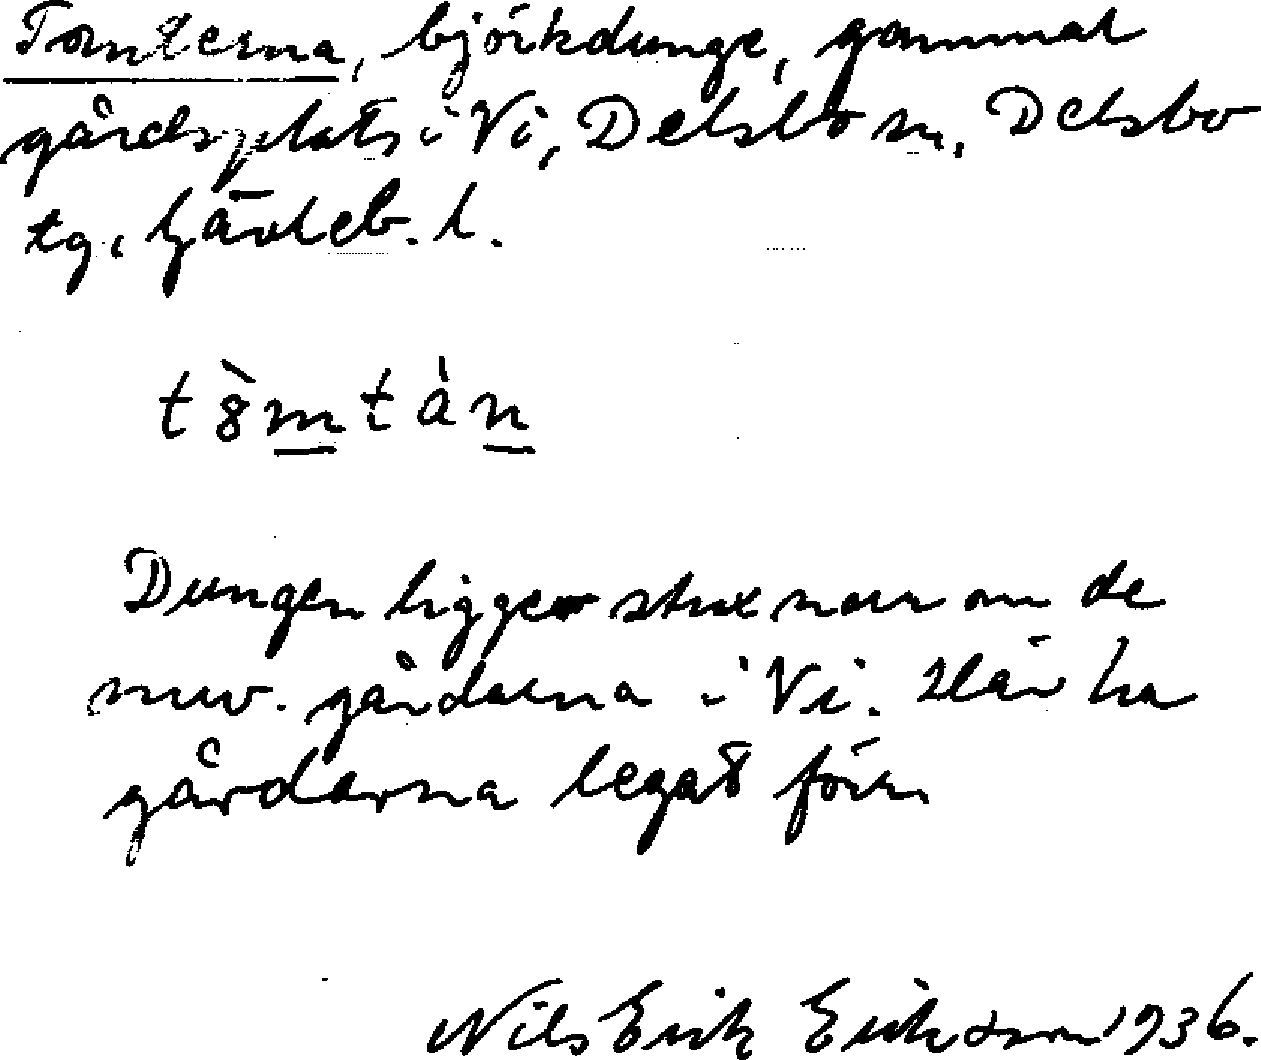 Tomterna, björkdunge, gammal
gårdsplats i Vi, Delsbo sn, Delsbo
tg, Gävleb. l.
t8̀mtàn
Dungen ligger strax norr om de
nuv. gårdarna i Vi. Här ha
gårdarna legat förr
Nils Erik Eriksson 1936.